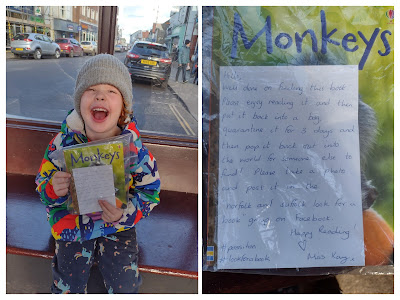 Monkeys
Monkeys
Hello,
Well done on finding this book.
Please enjoy reading it and then
put it back into a bag,
quarantine it for 3 days and
then pop it back out into
the world for someone else to
find! Please take a photo
and post it on the
"norfolk and suffolk look for a
book" group on facebook.
Happy Reading!
#lookforabook